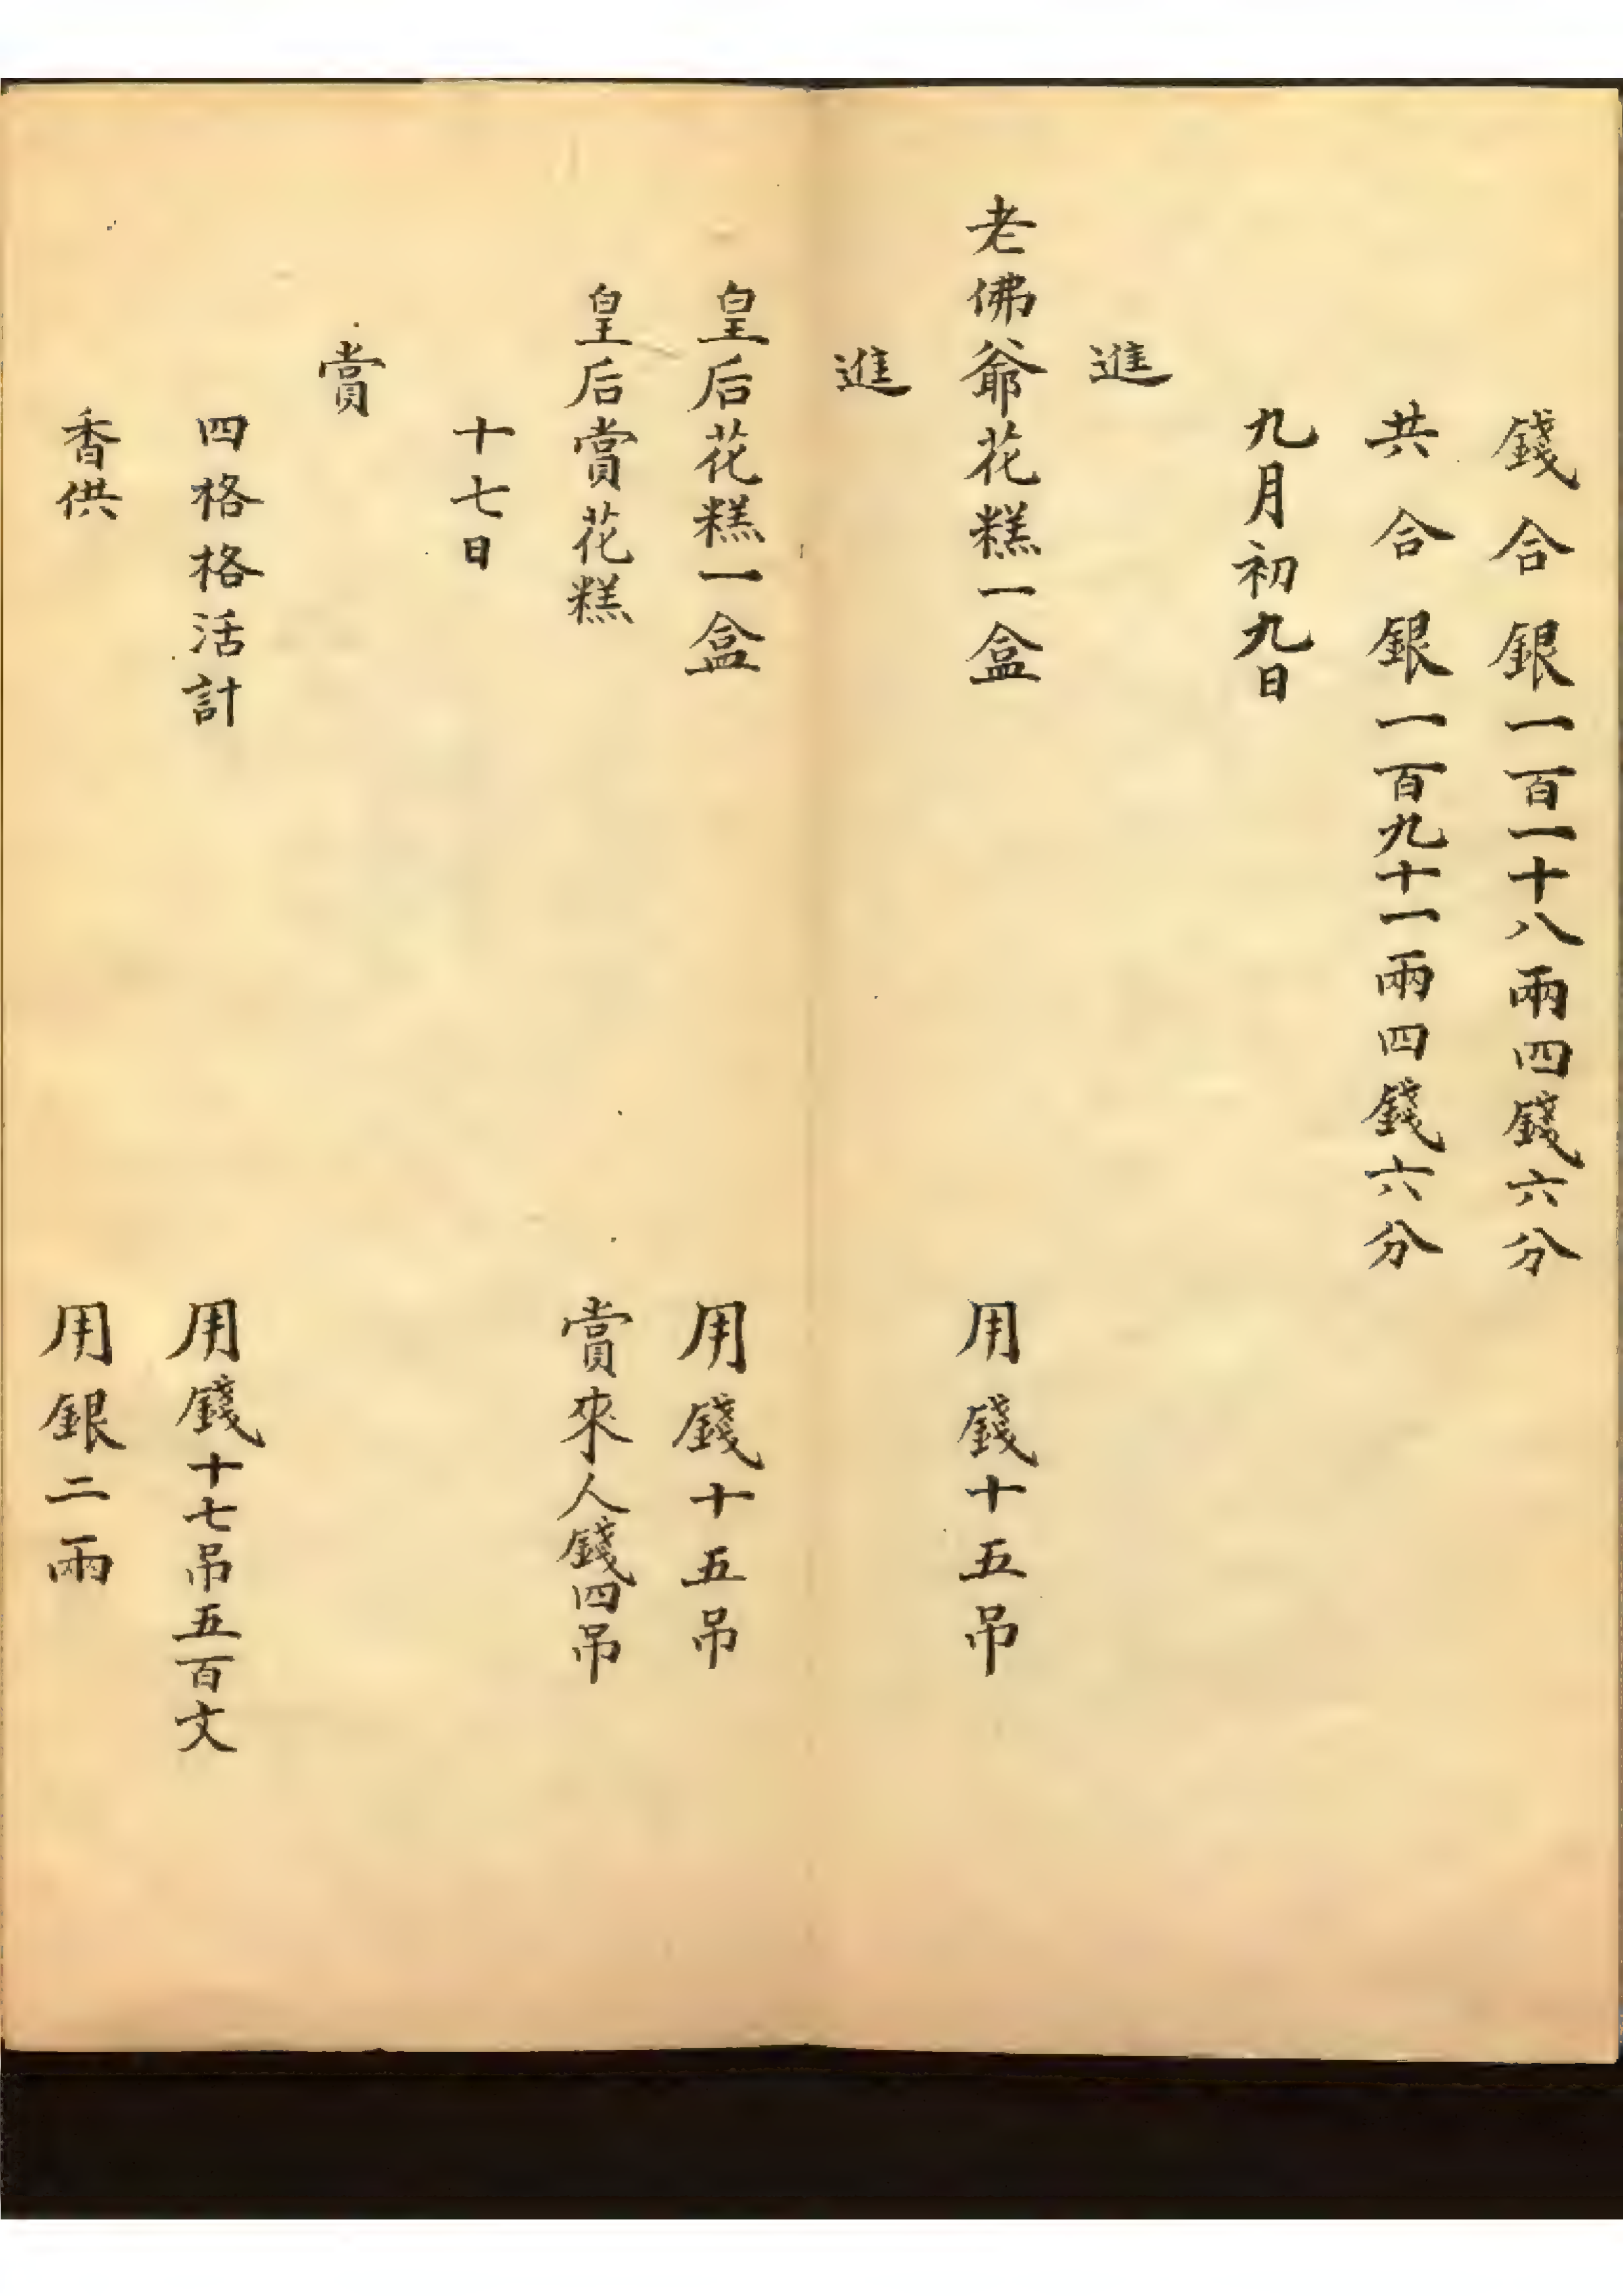 錢合銀一百一十八兩四錢六分
共合銀一百九十一兩四錢六分
九月初九日
進
老佛爺花糕一盒 用錢十五吊
進
皇后花糕一盒 用錢十五吊
皇后賞花糕 賞來人錢四吊
十七日
賞
四格格活計 用錢十七吊五百文
香供 用銀二兩